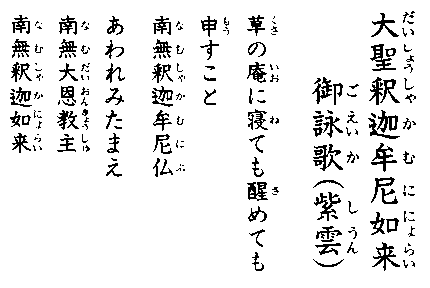 大聖釈迦牟尼如来
御詠歌(紫雲)
草の庵に寝ても醒めても
申すこと
南無釈迦牟尼仏
あわれみたまえ
南無大恩教主
南無釈迦如来